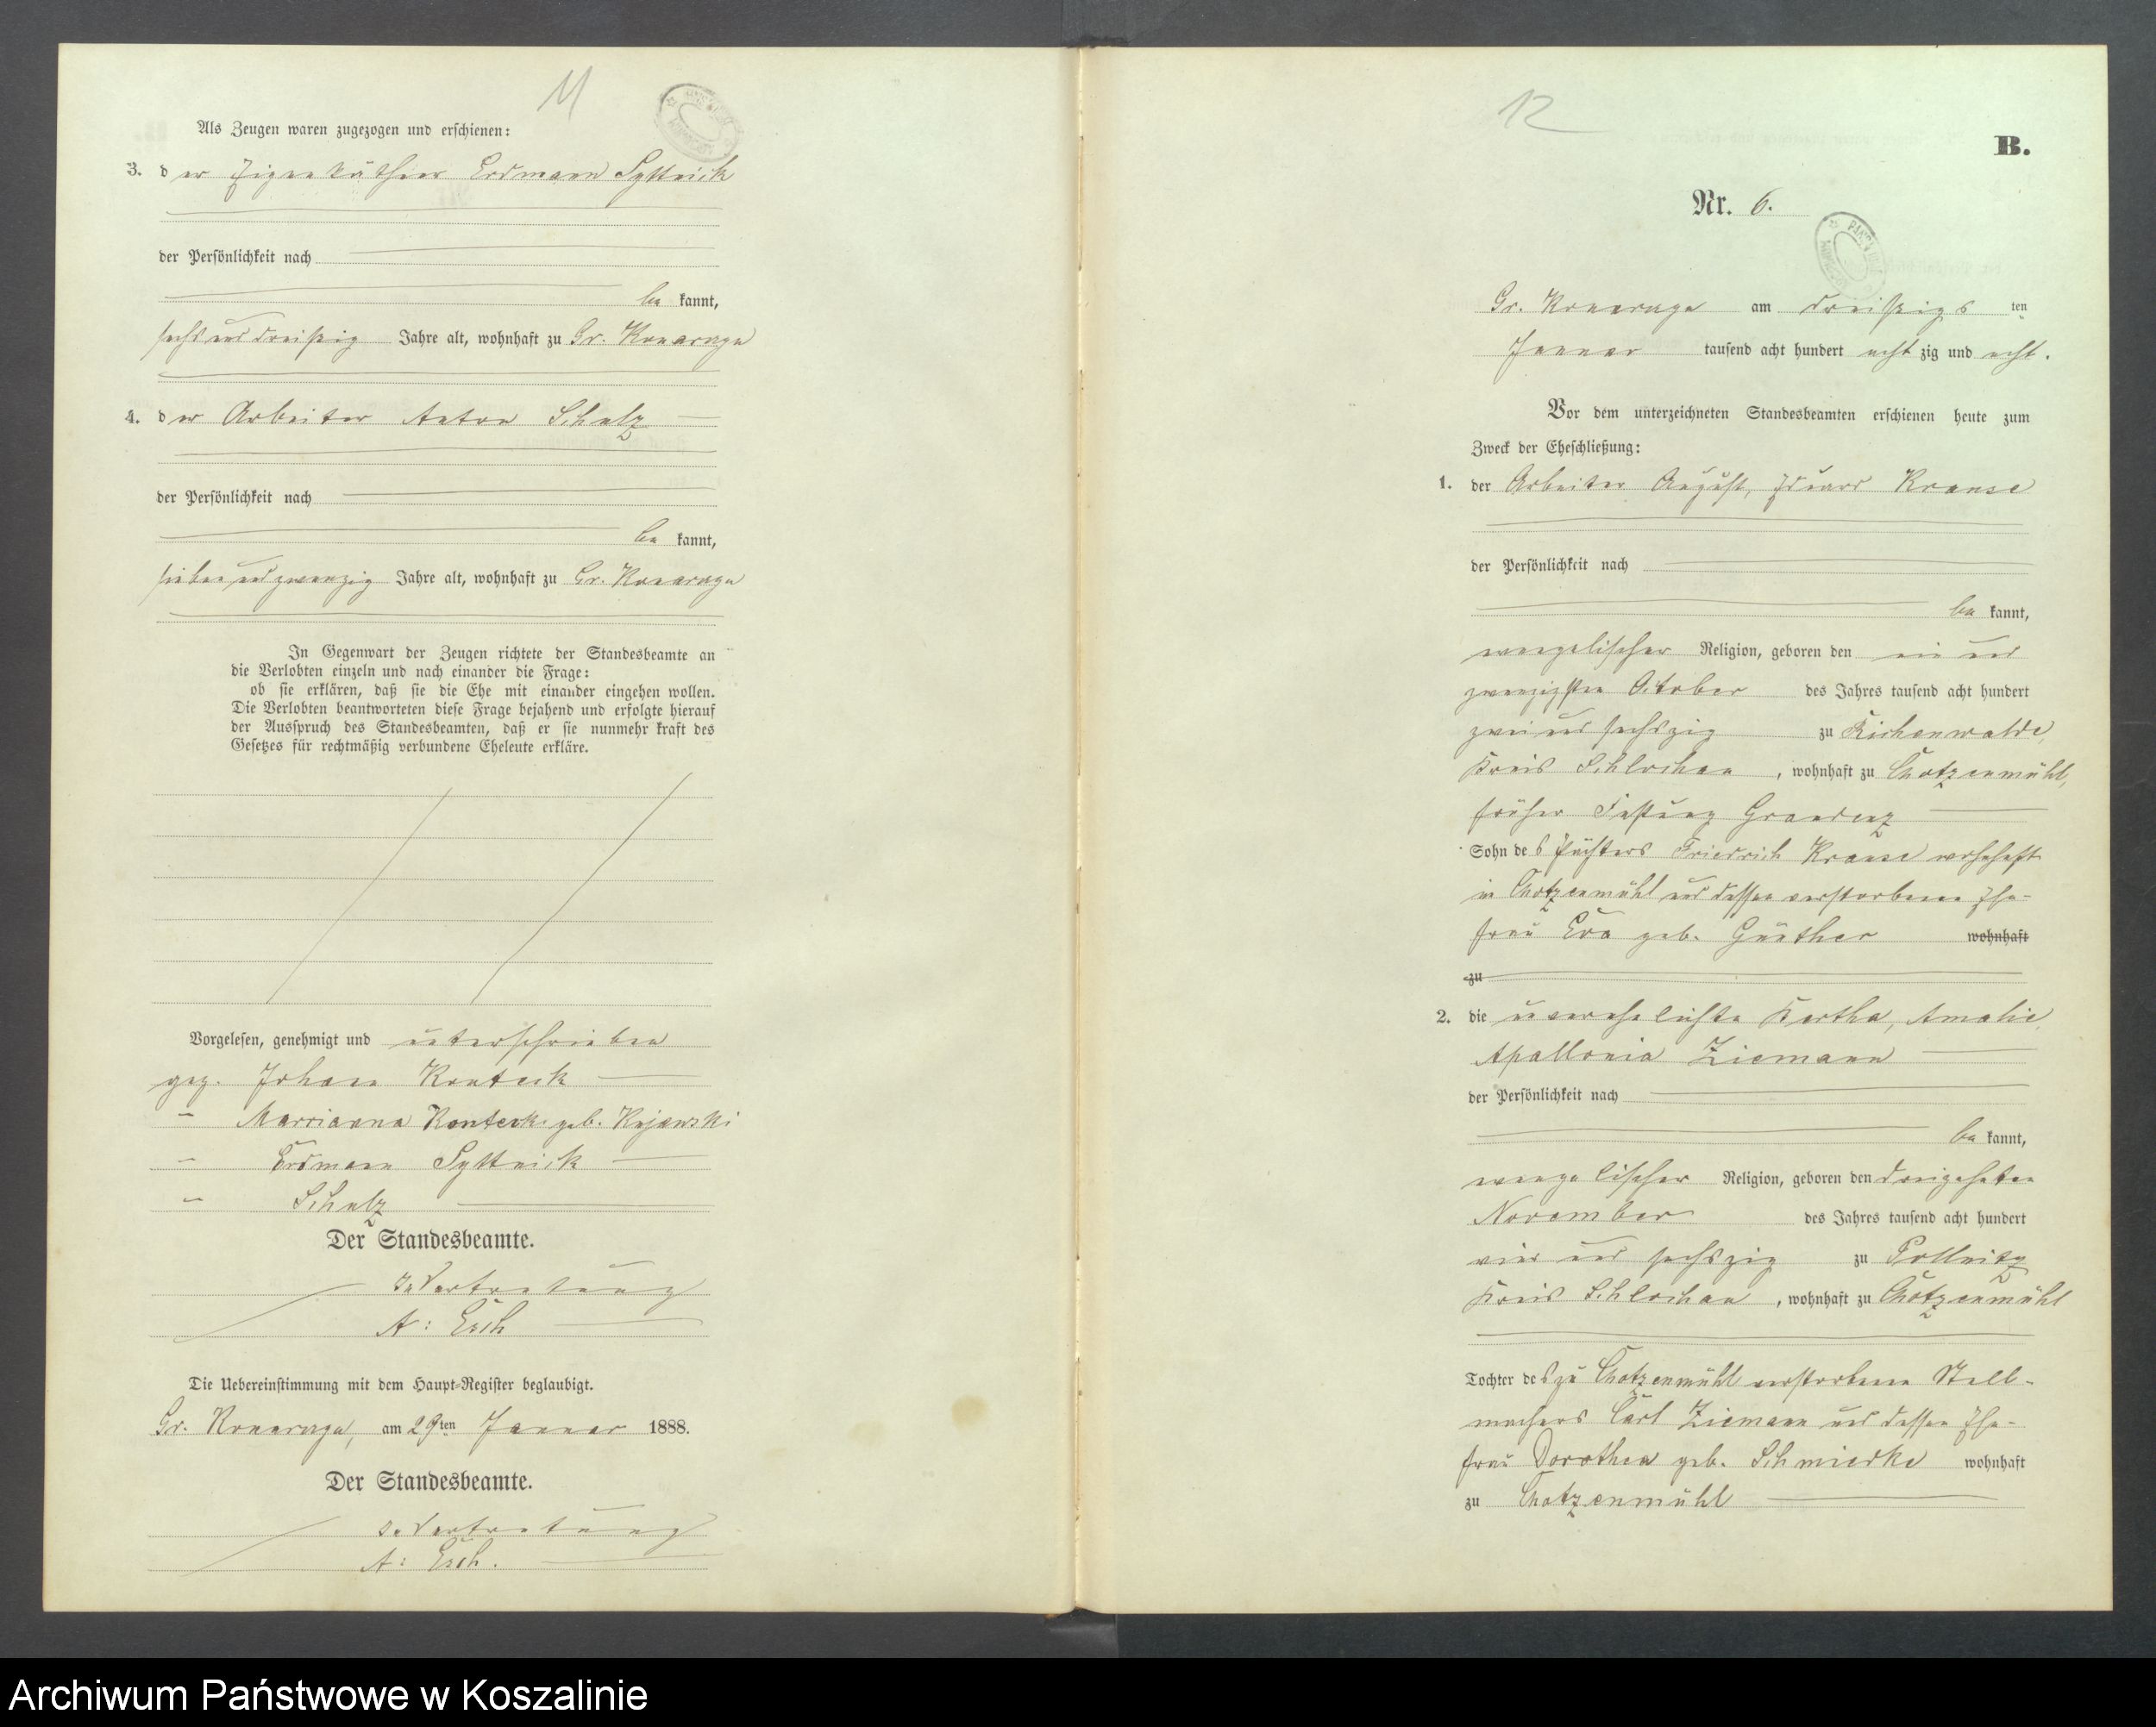 11
Als Zeugen waren zugezogen und erschienen:
3. der Eigenkäthner Erdmann Syttnick
der Persönlichkeit nach
be kannt,
sechs und dreißig Jahre alt, wohnhaft zu Gr. Konarzyn
4. der Arbeiter Anton Schulz
der Persönlichkeit nach
be kannt,
sieben und zwanzig Jahre alt, wohnhaft zu Gr. Konarzyn
In Gegenwart der Zeugen richtete der Standesbeamte an
die Verlobten einzeln und nach einander die Frage:
ob sie erklären, daß sie die Ehe mit einander eingehen wollen.
Die Verlobten beantworteten diese Frage bejahend und erfolgte hierauf
der Ausspruch des Standesbeamten, daß er sie nunmehr kraft des
Gesetzes für rechtmäßig verbundene Eheleute erkläre.
Vorgelesen, genehmigt und unterschrieben
gez. Johann Konteck
" Marrianna Konteck geb. Kujawski
" Erdmann Syttnick
" Schulz
Der Standesbeamte.
In Vertretung
A: Esch
Die Uebereinstimmung mit dem Haupt-Register beglaubigt.
Gr. Konarzyn, am 29ten Januar 1888.
Der Standesbeamte.
In Vertretung
A: Esch.
12
B.
Nr. 6.
Gr. Konarzyn am dreißigs ten
Januar tausend acht hundert acht zig und acht.
Vor dem unterzeichneten Standesbeamten erschienen heute zum
Zweck der Eheschließung:
1. der Arbeiter August, Eduard Krause
der Persönlichkeit nach
be kannt,
evangelischer Religion, geboren den ein und
zwanzigsten October des Jahres tausend acht hundert
zwei und sechszig zu Eichenwalde,
Kreis Schlochau, wohnhaft zu Chotzenmühl,
früher Festung Graudenz
Sohn des Pächters Friedrich Krause wohnhaft
in Chotzenmühl und dessen verstorbenen Ehe-
frau Eva geb. Günther wohnhaft
zu
2. die unverehelichte Bertha, Amalie,
Apallonia Ziemann
der Persönlichkeit nach
be kannt,
evangelischer Religion, geboren den dreizehnten
November des Jahres tausend acht hundert
vier und sechszig zu Pollnitz
Kreis Schlochau, wohnhaft zu Chotzenmühl
Tochter des zu Chotzenmühl verstorbenen Stell-
machers Carl Ziemann und dessen Ehe-
frau Dorothea geb. Schmierke wohnhaft
zu Chotzenmühl
Archiwum Państwowe w Koszalinie